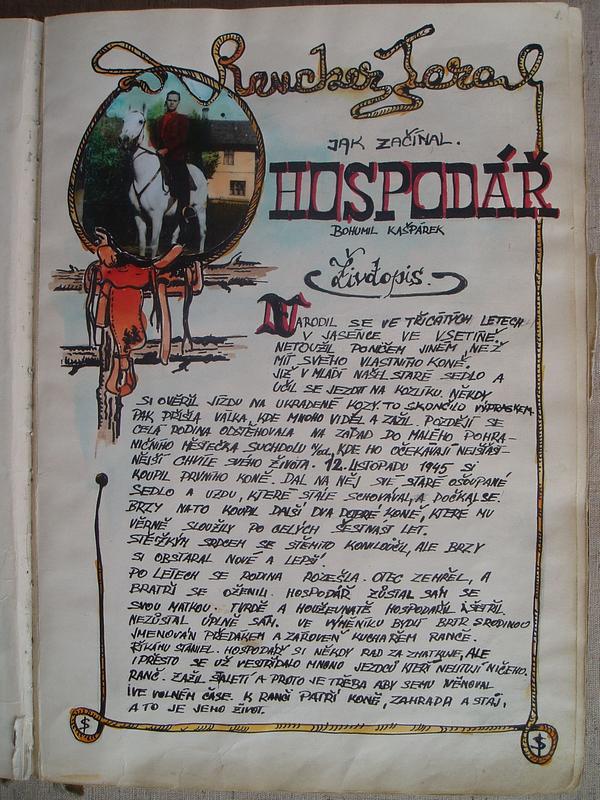 Rancher Jara
JAK ZAČÍNAL.
HOSPODÁŘ
BOHUMIL KAŠPÁREK
Životopis.
NARODIL SE VE TŘICÁTÝCH LETECH
V JASENCE VE VSETÍNĚ.
NETOUŽIL PONĚČEM JINÉM, NEŽ
MÍT SVÉHO VLASTNÍHO KONĚ.
JIŽ V MLÁDÍ NAŠEL STARÉ SEDLO A
UČIL SE JEZDIT NA KOZLÍKU. NĚKDY
SI OVĚŘIL JÍZDU NA UKRADENÉ KOZY. TO SKONČILO VÝPRASKEM.
PAK PŘIŠLA VÁLKA, KDE MNOHO VIDĚL A ZAŽIL. POZDĚJI SE
CELÁ RODINA ODSTĚHOVALA NA ZÁPAD DO MALÉHO POHRA-
NIČNÍHO MĚSTEČKA SUCHDOLU n/od, KDE HO OČEKÁVALI NEJŠŤAST-
NĚJŠÍ CHVÍLE SVÉHO ŽIVOTA. 12. LISTOPADU 1945 SI
KOUPIL PRVNÍHO KONĚ. DAL NA NĚJ SVÉ STARÉ OŠOUPANÉ
SEDLO A UZDU, KTERÉ STÁLE SCHOVÁVAL, A DOČKAL SE.
BRZY NATO KOUPIL DALŠÍ DVA DOBRÉ KONĚ, KTERÉ MU
VĚRNĚ SLOUŽILY PO CELÝCH ŠESTNÁST LET.
S TĚŽKÝM SRDCEM SE S TĚMITO KONI LOUČIL, ALE BRZY
SI OBSTARAL NOVÉ A LEPŠÍ.
PO LETECH SE RODINA ROZEŠLA. OTEC ZEMŘEL, A
BRATŘI SE OŽENILI. HOSPODÁŘ ZŮSTAL SÁM SE
SVOU MATKOU. TVRDĚ A HOUŽEVNATĚ HOSPODAŘIL A ŠETŘIL.
NEZŮSTAL ÚPLNĚ SÁM. VE VÝMĚNKU BYDLÍ BRTR S RODINOU
JMENOVÁN PŘEDÁKEM A ZÁROVEŇ KUCHAŘEM RANČE.
ŘÍKÁHU STANIEL. HOSPODÁŘI SI NĚKDY RÁD ZAZMATKUJE, ALE
I PŘESTO SE UŽ VYSTŘÍDALO MNOHO JEZDCŮ KTEŘÍ NELITUJÍ NIČEHO.
RANČ. ZAŽIL STALETÍ A PROTO JE TŘEBA ABY SEMU VĚNOVAL
I VE VOLNÉM ČASE. K RANČI PATŘÍ KONĚ, ZAHRADA A STÁJ,
A TO JE JEHO ŽIVOT.
$
$